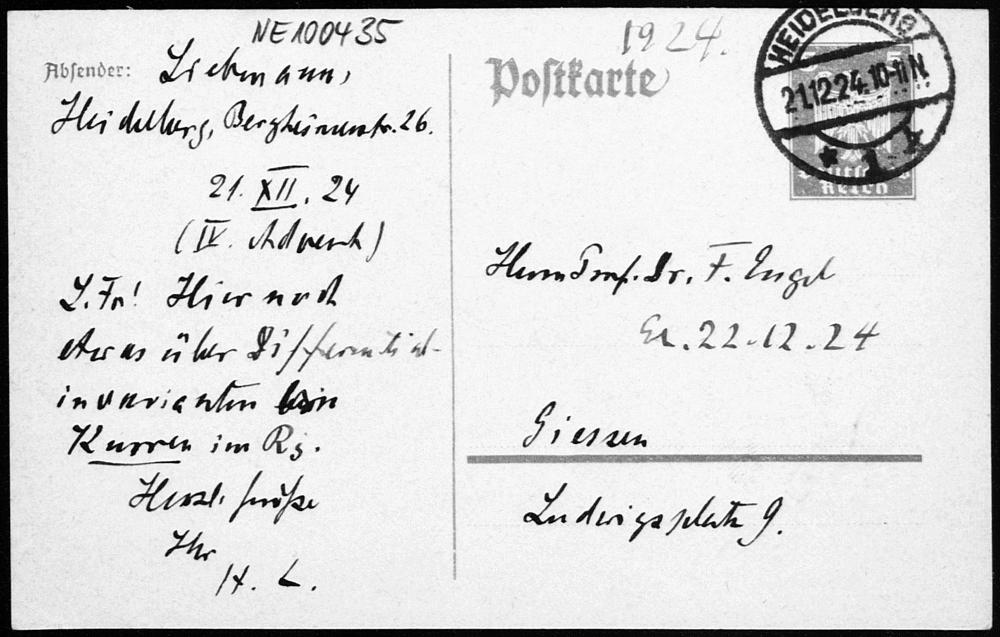 NE100435
1924.
Absender: Liebmann,
Heidelberg, Bergheimerstr. 26.
21. XII. 24
(IV. Advent)
L. Fr! Hier noch
etwas über Differential-
invarianten
Kurven im R₃.
Herzl. Grüße
Ihr
H. L.
Postkarte
HEIDELBERG
21.12.24.10-11 N
* 1 *
Deutsches
Reich
Herrn Prof. Dr. F. Engel
22.12.24
Giessen
Ludwigsplatz 9.